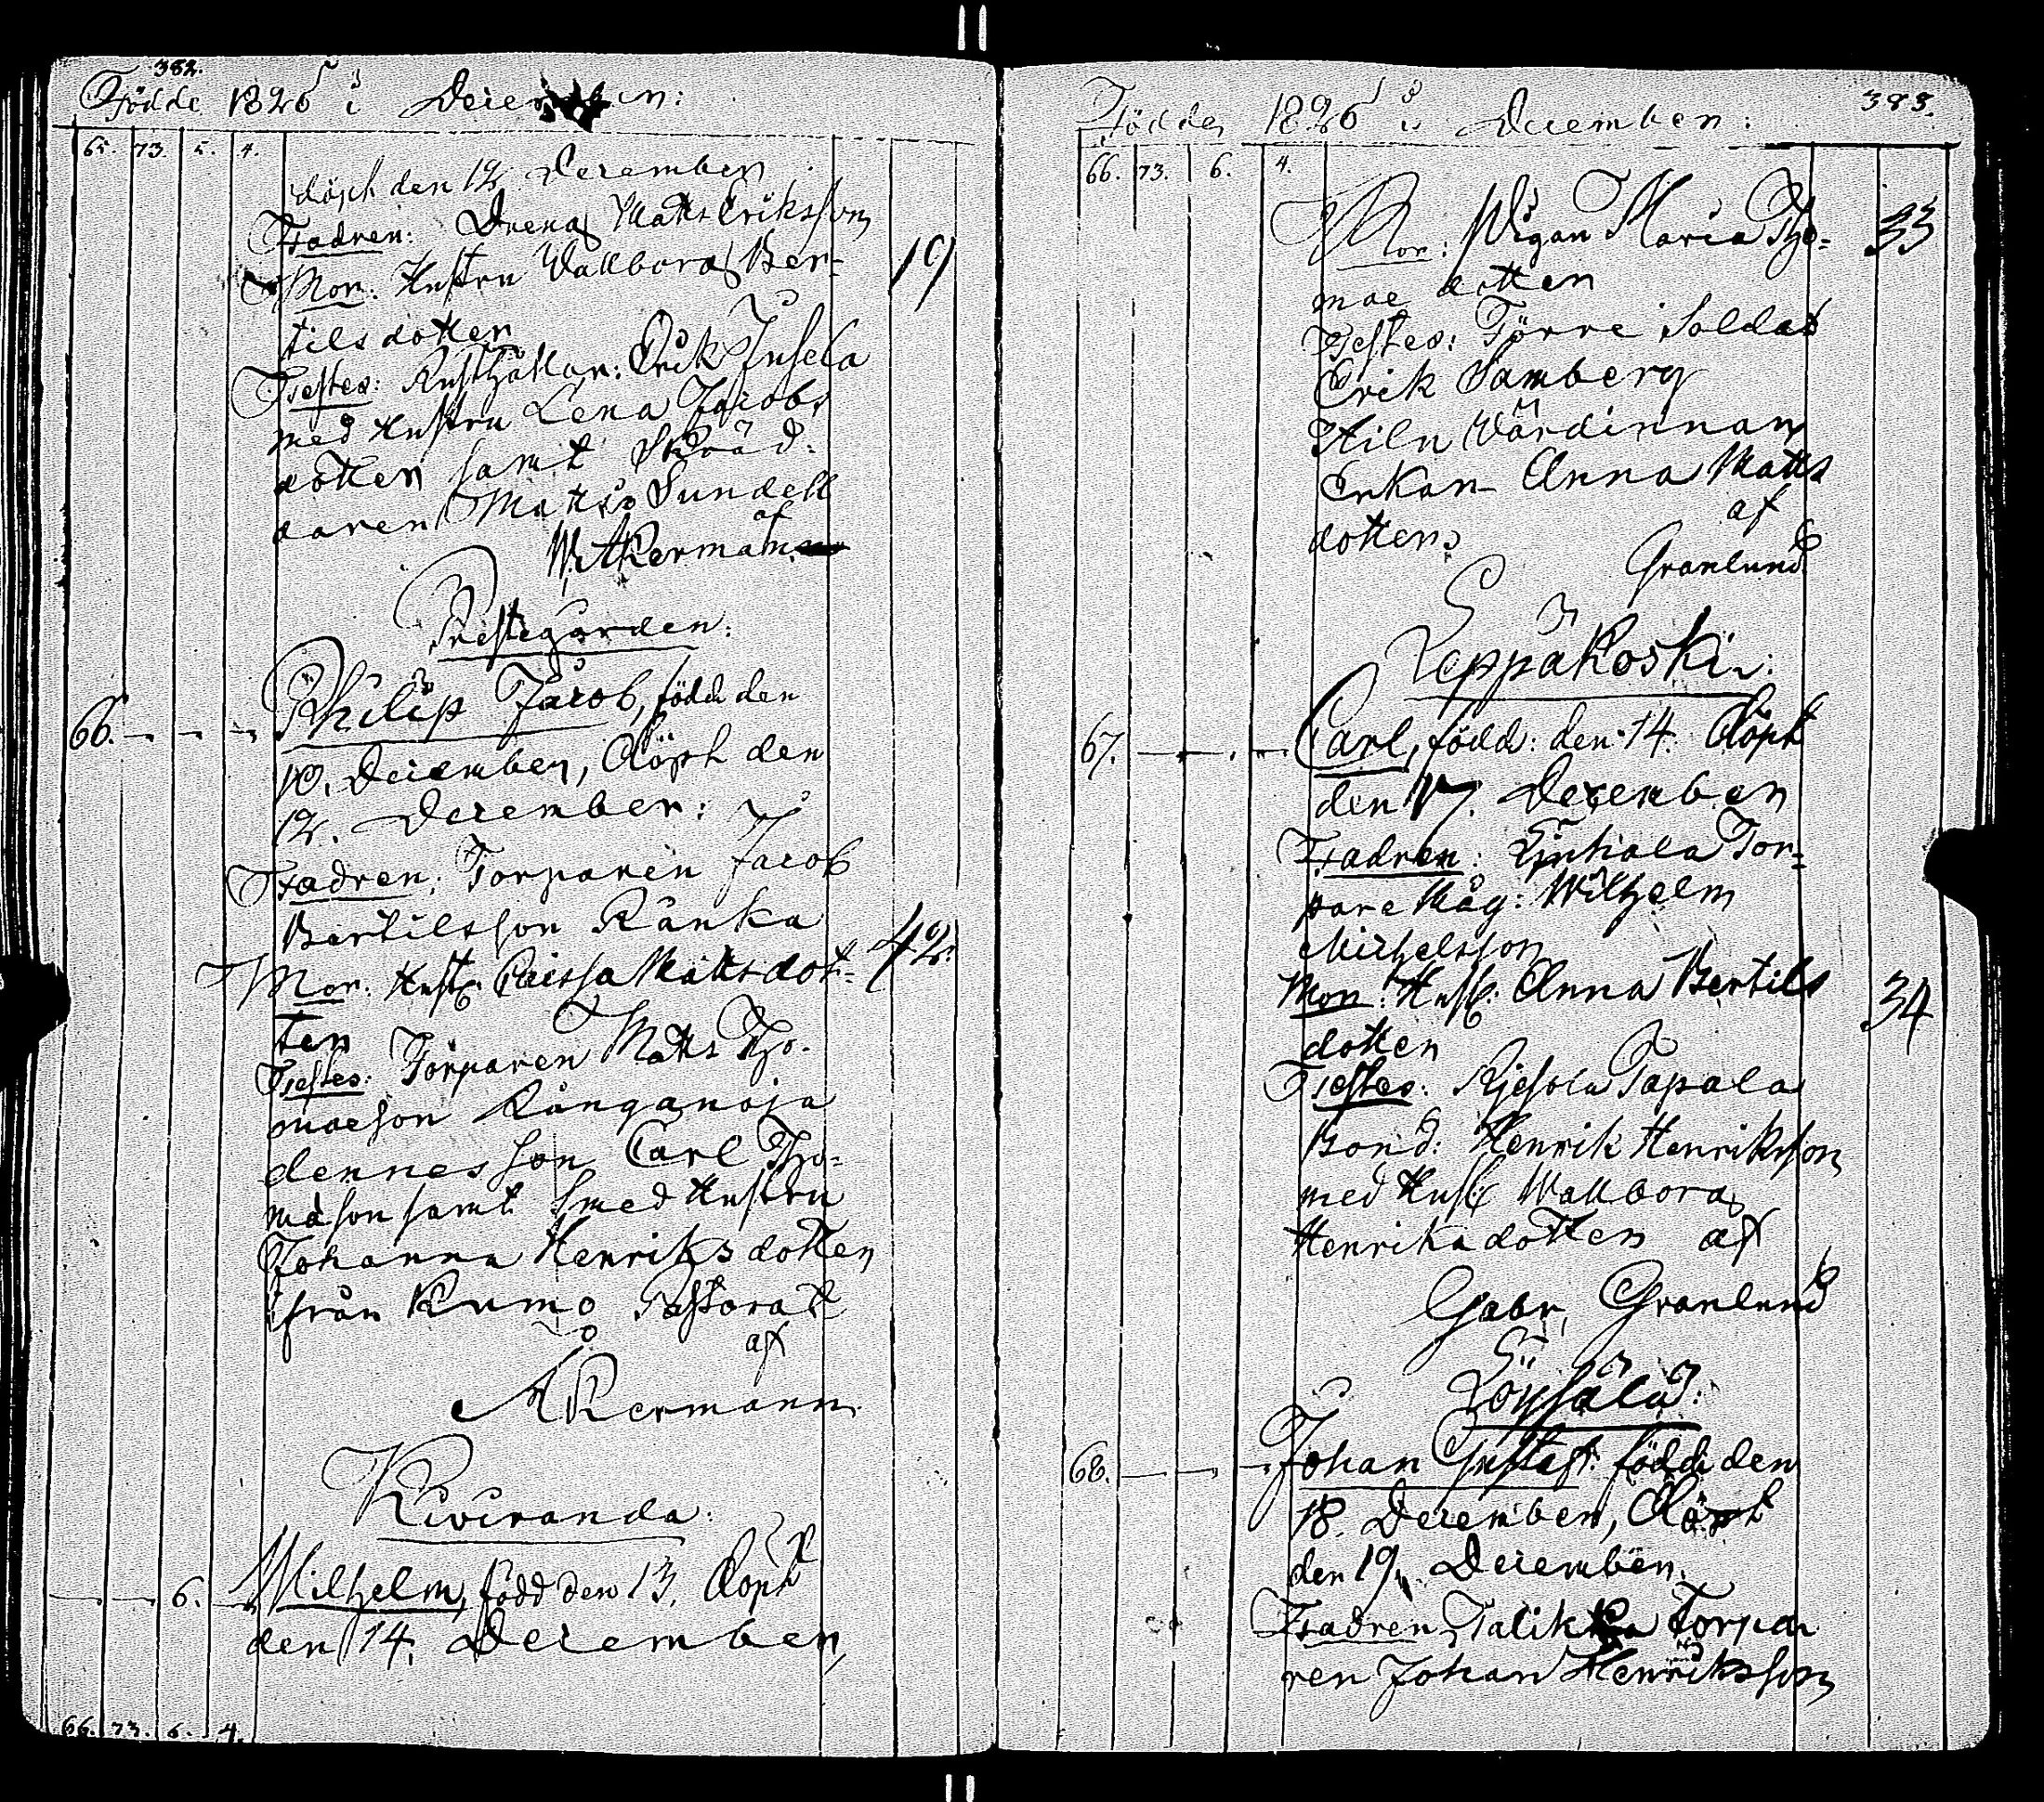 382.
Födde 1826 i December:
65. 73. 5. 4.
döpt den 12 December
Fadren: Dreng Matts Eriksson
Mor: Hustru Wallborg Ber= 19
tilsdotter
Testes: Rusthållar: Erik Jusela
med Hustru Lena Jacobs
dotter samt Skräd:
daren Matts Sundell
af
W. Åkerman
Prestegården:
66. Philip Jacob, född den
10. December, döpt den
12. December:
Fadren: Torparen Jacob
Bertilsson Ranka
Mor: Hust: Caissa Mattsdot= 42.
ter
Testes: Torparen Matts Tho-
maeson Kånganoja
dennes son Carl Tho=
mason samt Smed Hustru
Johanna Henriksdotter
från Kumo Pastorat
af
Åkermann
Kiviranda:
6. Wilhelm, född den 13. döpt
den 14. December,
66. 73. 6. 4.
383.
Födde 1826 i December:
66. 73. 6. 4.
Mor: Pigan Maria Tho= 33
mae dotter
Testes: Förre Soldat
Erik Samberg
Hiln Värdinnan
Enkan Anna Matts
dotter af
Granlund
Leppäkoski:
67. Carl, född: den 14. döpt
den 17. December
Fadren: Tor=
pare Måg: Wilhelm
Michelsson
Mor: Hust: Anna Bertils 34
dotter
Testes: Kjesola Papala
Bond: Henrik Henriksson
med Hust: Wallborg
Henriksdotter af
Gabr. Granlund
68. Johan Gustaf: född den
18. December, döpt
den 19. December.
Fadren Talikka Torpa
ren Johan Henriksson